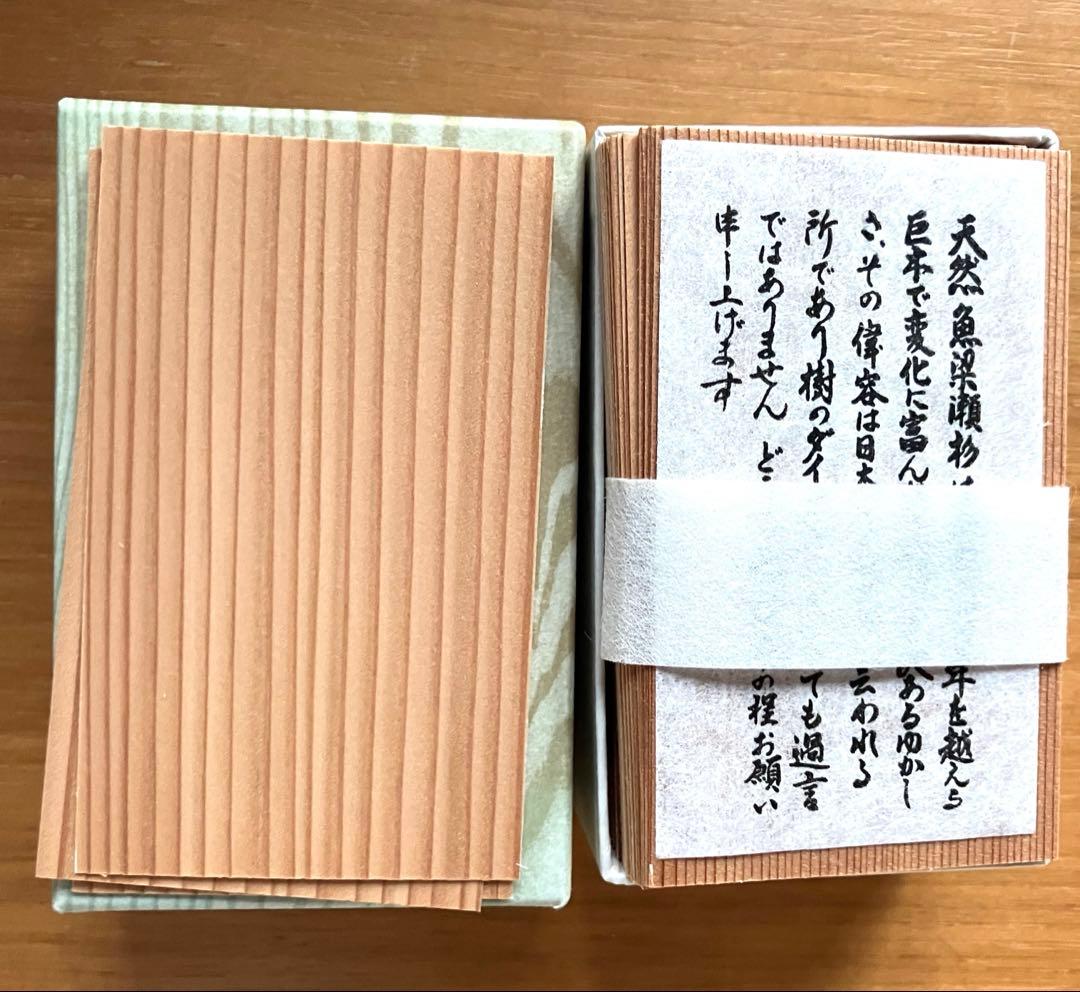 天然魚梁瀬杉は 年を越える
巨木で変化に富ん あるゆかし
さ、その偉容は日本 云われる
所であり樹のダイ ても過言
ではありません ど の程お願い
申し上げます